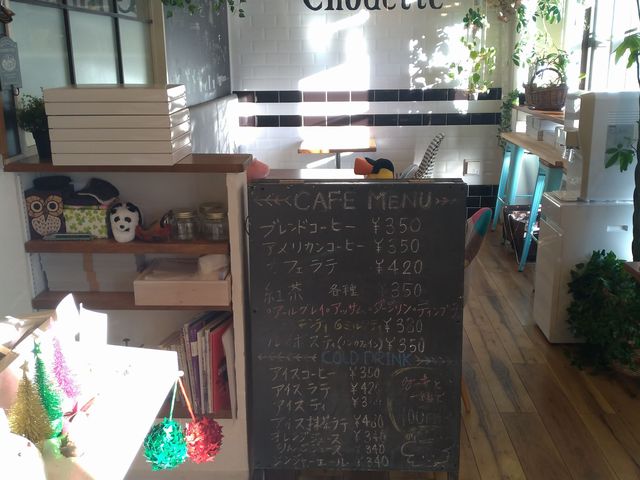 Chouette
CAFE MENU
ブレンドコーヒー ¥350
アメリカンコーヒー ¥350
カフェラテ ¥420
紅茶 各種 ¥350
・アールグレイ・アッサム・ダージリン・ディンブラ
¥380
ルイボスティ(ノンカフェイン) ¥350
COLD DRINK
アイスコーヒー ¥350
アイスラテ ¥420
アイスティ
アイス抹茶ラテ
オレンジジュース ¥340
りんごジュース ¥340
ジンジャーエール ¥340
ケーキと
一緒で